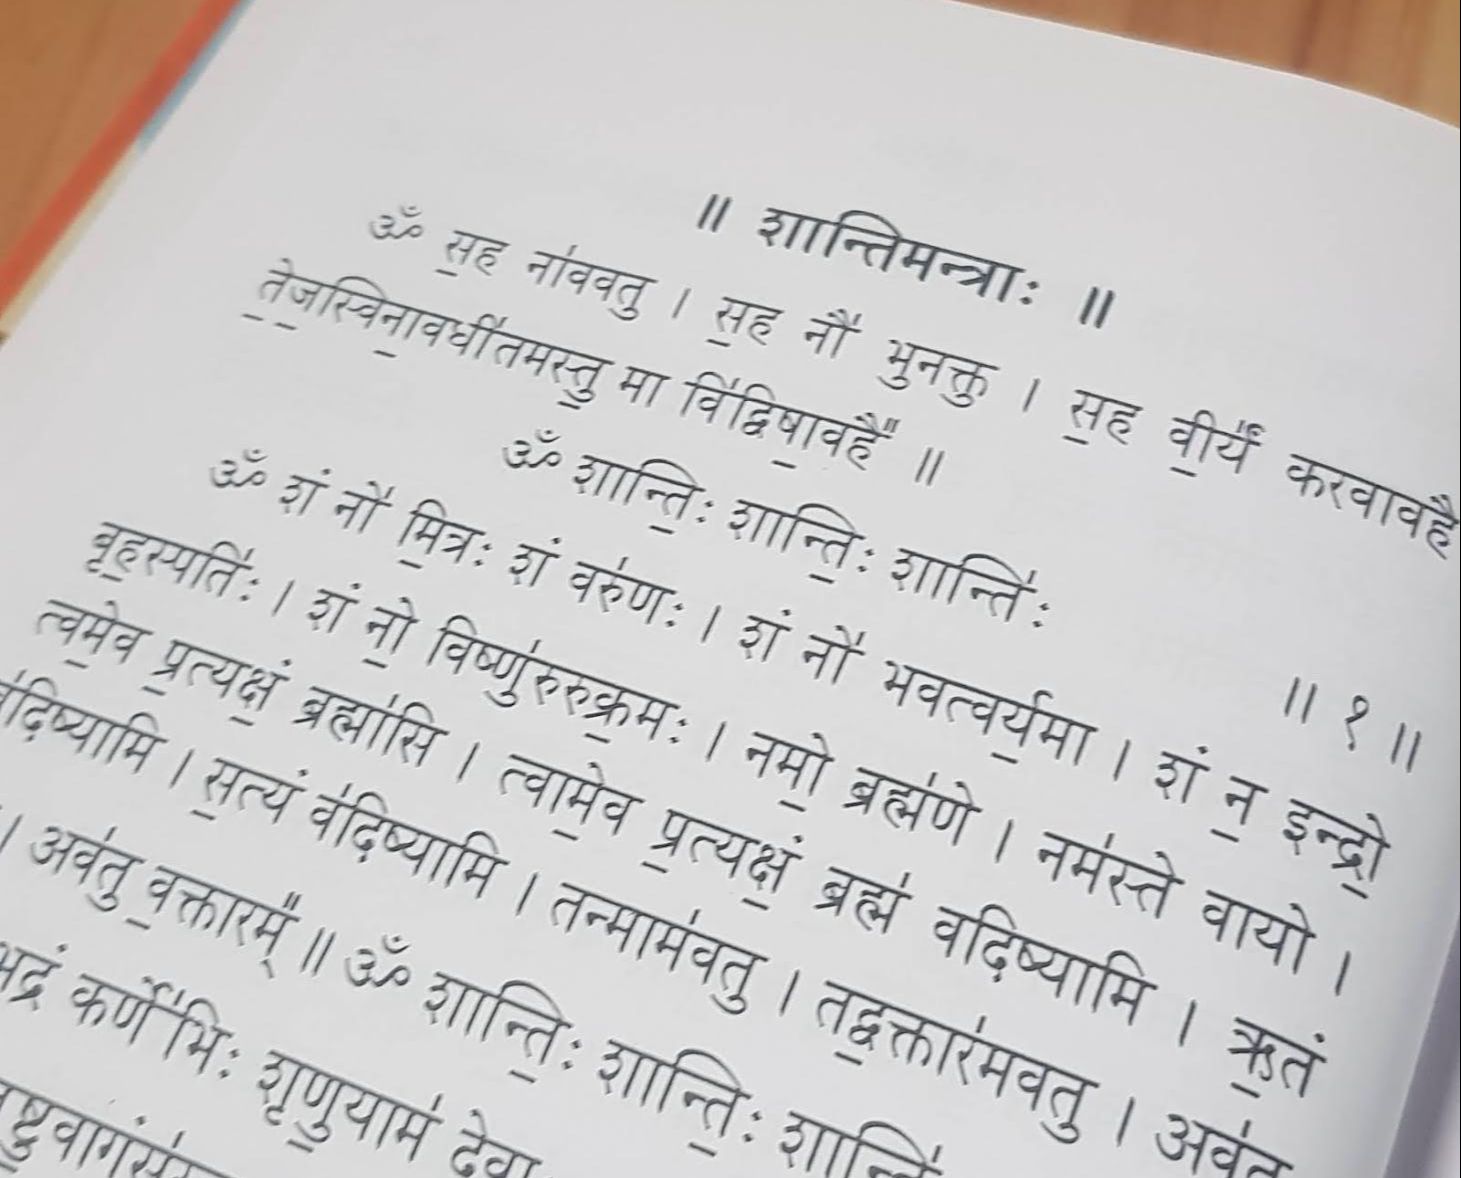 ॥ शान्तिमन्त्राः ॥
ॐ स॒ह ना॑ववतु । स॒ह नौ॑ भुनक्तु । स॒ह वी॒र्यं॑ करवावहै
ते॒ज॒स्विना॒वधी॑तमस्तु॒ मा वि॑द्विषा॒वहै᳚ ॥
ॐ शान्तिः॒ शान्तिः॒ शान्तिः॑
॥ १ ॥
ॐ शं नो॑ मि॒त्रः शं वरु॑णः । शं नो॑ भवत्वर्य॒मा । शं न॒ इन्द्रो॒
बृह॒स्पतिः॑ । शं नो॒ विष्णु॑रुरुक्र॒मः । नमो॒ ब्रह्म॑णे । नम॑स्ते वायो ।
त्वमे॒व प्र॒त्यक्षं॒ ब्रह्मा॑सि । त्वामे॒व प्र॒त्यक्षं॒ ब्रह्म॑ वदिष्यामि । ऋ॒तं
व॑दिष्यामि । स॒त्यं व॑दिष्यामि । तन्माम॑वतु । तद्व॒क्तार॑मवतु । अव॑तु
। अव॑तु व॒क्तारम्᳚ ॥ ॐ शान्तिः॒ शान्तिः॒ शान्तिः॑
भद्रं कर्णे॑भिः शृणु॒याम॑ देवा